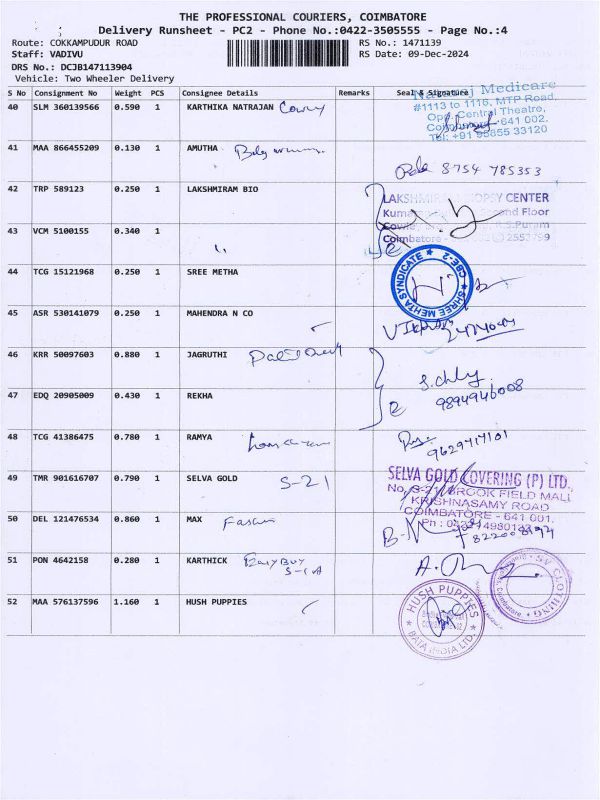 THE PROFESSIONAL COURIERS, COIMBATORE
Delivery Runsheet - PC2 - Phone No.:0422-3505555 - Page No.:4
Route: COKKAMPUDUR ROAD RS No.: 1471139
Staff: VADIVU RS Date: 09-Dec-2024
DRS No.: DCJB147113904
Vehicle: Two Wheeler Delivery
S No Consignment No Weight PCS Consignee Details Remarks Seal & Signature
40 SLM 360139566 0.590 1 KARTHIKA NATRAJAN
Medicare
#1113 to 1116, MTP Road,
Opp. Central Theatre,
641 002.
Tel: +91 98855 33120
41 MAA 866455209 0.130 1 AMUTHA
8754 785353
42 TRP 589123 0.250 1 LAKSHMIRAM BIO
CENTER
nd Floor
R.S.Puram
Coimbatore
43 VCM 5100155 0.340 1
2
44 TCG 15121968 0.250 1 SREE METHA
SHREE MEHTA SYNDICATE ★ CBE-2 ★
45 ASR 530141079 0.250 1 MAHENDRA N CO
46 KRR 50097603 0.880 1 JAGRUTHI
9894946008
47 EDQ 20905009 0.430 1 REKHA
2
48 TCG 41386475 0.780 1 RAMYA
9629717101
49 TMR 901616707 0.790 1 SELVA GOLD S-21
SELVA GOLD COVERING (P) LTD.
No. S-21, BROOK FIELD MALL
KRISHNASAMY ROAD
COIMBATORE - 641 001.
50 DEL 121476534 0.860 1 MAX Fashion
51 PON 4642158 0.280 1 KARTHICK EasyBuy
SV CLOTHING
Coimbatore
52 MAA 576137596 1.160 1 HUSH PUPPIES
HUSH PUPPIES
BATA INDIA LTD.